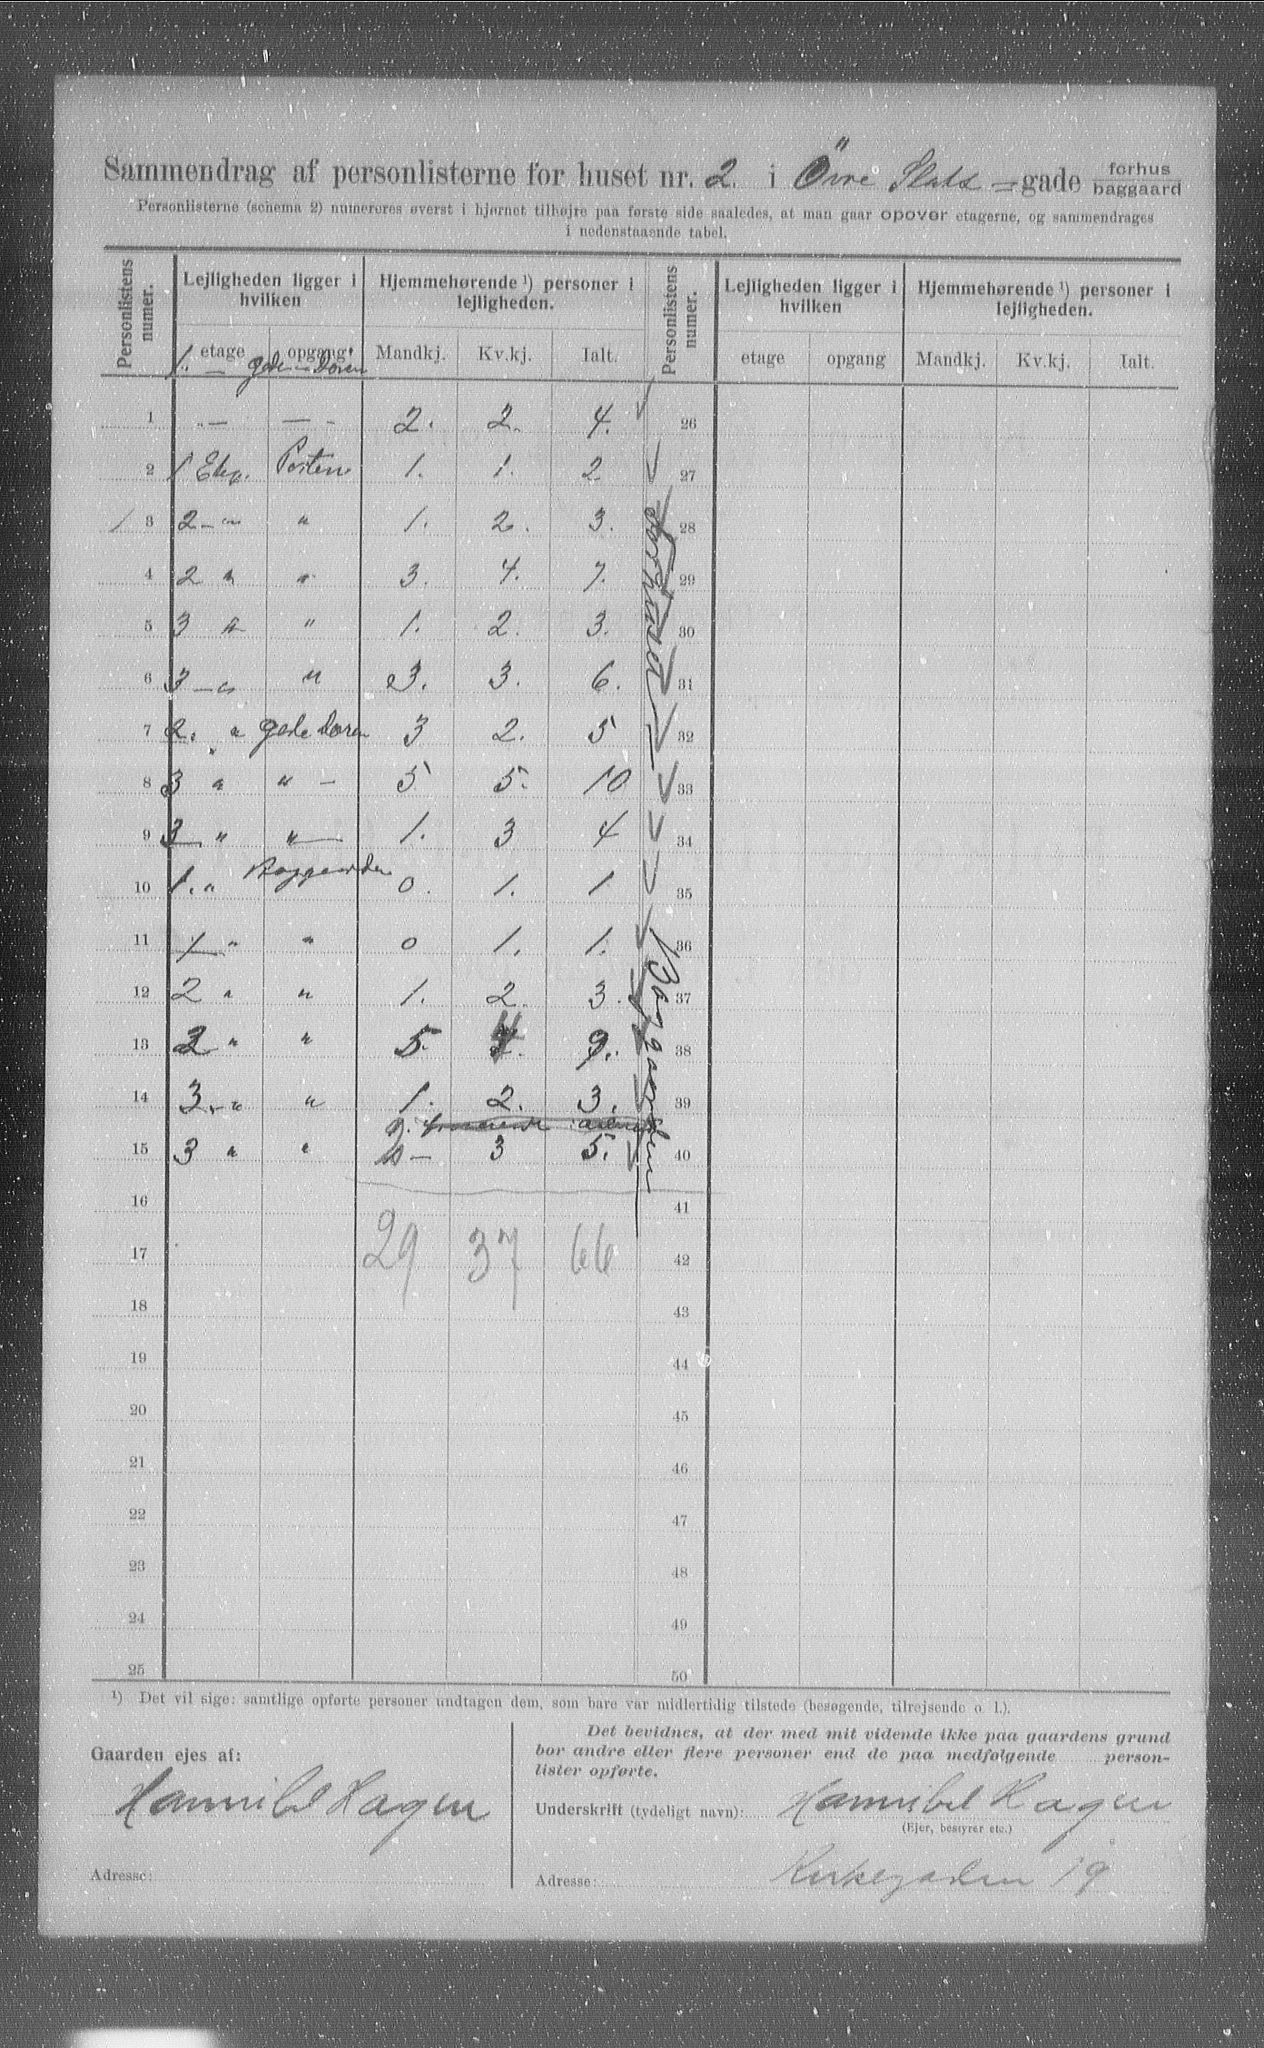 Sammendrag af personlisterne for huset nr. 2. i Övre Slots-gade forhus baggaard
Personlisterne (schema 2) numereres øverst i hjørnet tilhøjre paa første side saaledes, at man gaar opover etagerne, og sammendrages
i nedenstaaende tabel.
Personlistens numer. Lejligheden ligger i hvilken Hjemmehørende ¹) personer i lejligheden. Personlistens numer. Lejligheden ligger i hvilken Hjemmehørende ¹) personer i lejligheden.
etage opgang Mandkj. Kv.kj. Ialt. etage opgang Mandkj. Kv.kj. Ialt.
1. — gadedøren
1 „ — — „ 2. 2. 4. 26
2 1 Etg. Porten 1. 1. 2 27
3 2 — „ „ 1. 2. 3. 28
4 2 „ „ 3. 4. 7. 29
5 3 „ „ 1. 2. 3. 30
6 3 — „ „ 3. 3. 6. 31
7 2. „ gadedøren 3 2. 5 32
8 3 „ „ — 5 5. 10 33
9 3 „ „ 1. 3 4 34
10 1. „ Baggaarden 0. 1. 1 35
11 1 „ „ 0 1. 1. 36
12 2 „ „ 1. 2. 3. 37
13 2 „ „ 5. 4 9. 38
14 3. „ „ 1. 2. 3. 39
15 3 „ „ 2. 3 5. 40
forhuset
Baggaarden
16 41
17 29 37 66 42
18 43
19 44
20 45
21 46
22 47
23 48
24 49
25 50
¹) Det vil sige: samtlige opførte personer undtagen dem, som bare var midlertidig tilstede (besøgende, tilrejsende o. l.).
Gaarden ejes af:
Hannibal Hagen
Adresse:
Det bevidnes, at der med mit vidende ikke paa gaardens grund
bor andre eller flere personer end de paa medfølgende person-
lister opførte.
Underskrift (tydeligt navn): Hannibal Hagen
(Ejer, bestyrer etc.)
Adresse: Kirkegaden 19